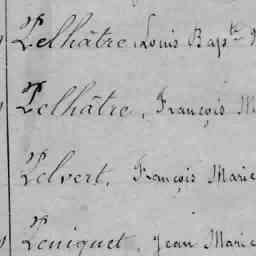 Lelhâtre, Louis Bapte
Lelhâtre, François M
Lelvert, François Marie
Leniquet, Jean Marie